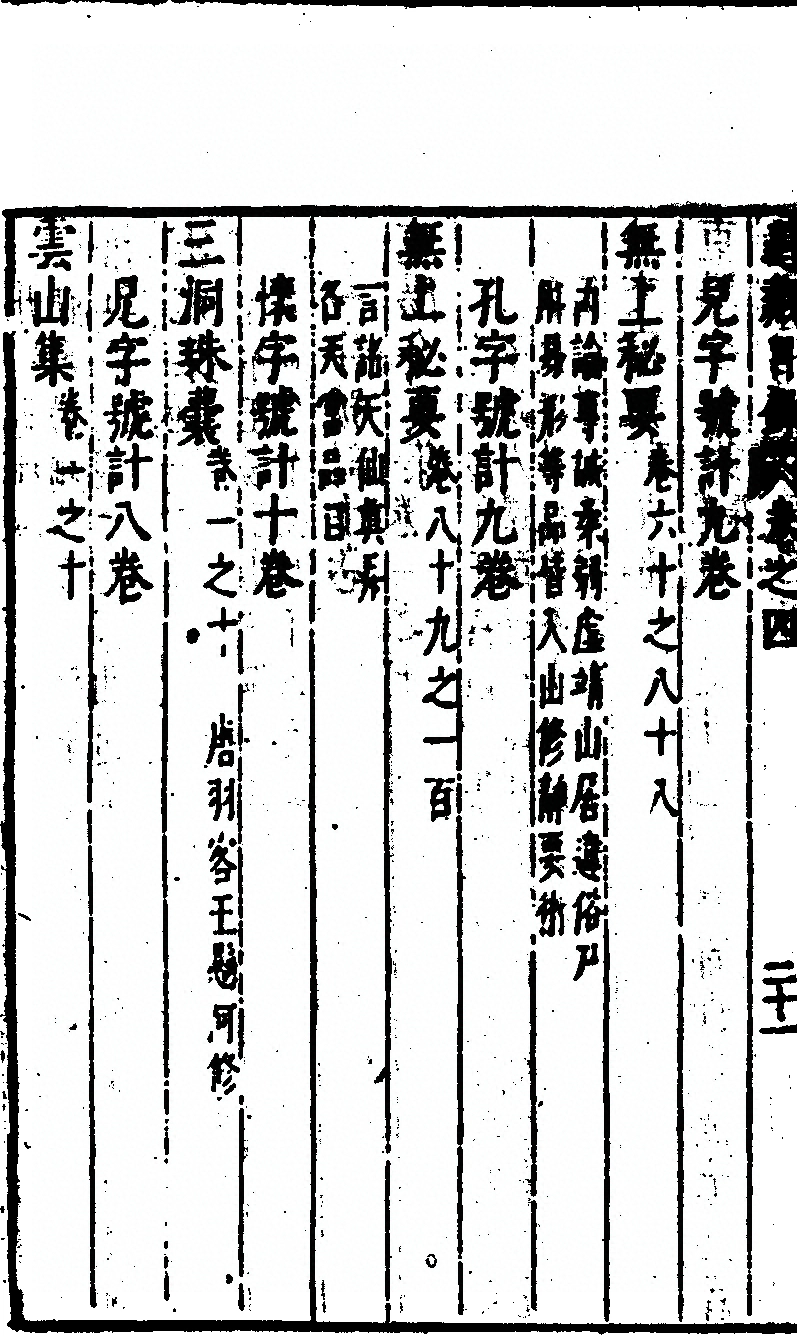 卷之四
二十一
兒字號計九卷
無上秘要卷六十之八十八
內論專誠柰朔虛靖山居違俗尸
解易形等品皆入山修靜要術
孔字號計九卷
無上秘要卷八十九之一百
言詺天仙真
各天
懷字號計十卷
三洞珠囊卷一之十 唐羽客王懸河修
字號計八卷
雲山集卷一之十